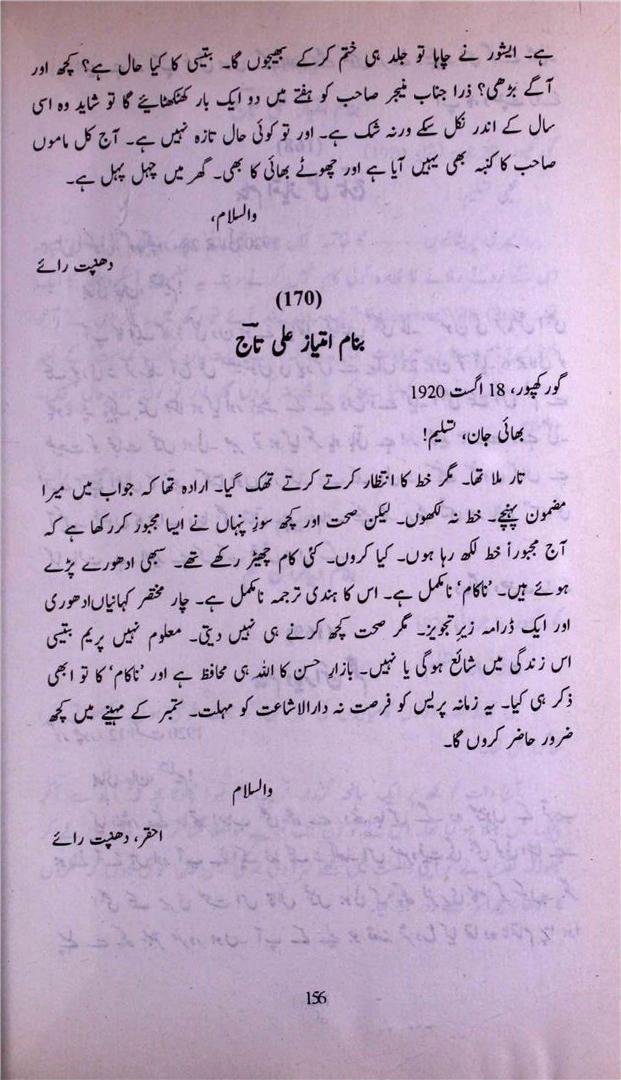 ہے۔ ایشور نے چاہا تو جلد ہی ختم کرکے بھیجوں گا۔ بتیسی کا کیا حال ہے؟ کچھ اور
آگے بڑھی؟ ذرا جناب منیجر صاحب کو ہفتے میں دو ایک بار کھٹکھٹایئے گا تو شاید وہ اسی
سال کے اندر نکل سکے ورنہ شک ہے۔ اور تو کوئی حال تازہ نہیں ہے۔ آج کل ماموں
صاحب کا کنبہ بھی یہیں آیا ہے اور چھوٹے بھائی کا بھی۔ گھر میں چہل پہل ہے۔
والسلام،
دھنپت رائے
(170)
بنام امتیاز علی تاج
گورکھپور، 18 اگست 1920
بھائی جان، تسلیم!
تار ملا تھا۔ مگر خط کا انتظار کرتے کرتے تھک گیا۔ ارادہ تھا کہ جواب میں میرا
مضمون پہنچے۔ خط نہ لکھوں۔ لیکن صحت اور کچھ سوزِ پنہاں نے ایسا مجبور کررکھا ہے کہ
آج مجبوراً خط لکھ رہا ہوں۔ کیا کروں۔ کئی کام چھیڑ رکھے تھے۔ سبھی ادھورے پڑے
ہوئے ہیں۔ 'ناکام' نامکمل ہے۔ اس کا ہندی ترجمہ نامکمل ہے۔ چار مختصر کہانیاں ادھوری
اور ایک ڈرامہ زیرِ تجویز۔ مگر صحت کچھ کرنے ہی نہیں دیتی۔ معلوم نہیں پریم بتیسی
اس زندگی میں شائع ہوگی یا نہیں۔ بازارِ حسن کا اللہ ہی محافظ ہے اور 'ناکام' کا تو ابھی
ذکر ہی کیا۔ یہ زمانہ پریس کو فرصت نہ دارالاشاعت کو مہلت۔ ستمبر کے مہینے میں کچھ
ضرور حاضر کروں گا۔
والسلام
احقر، دھنپت رائے
156